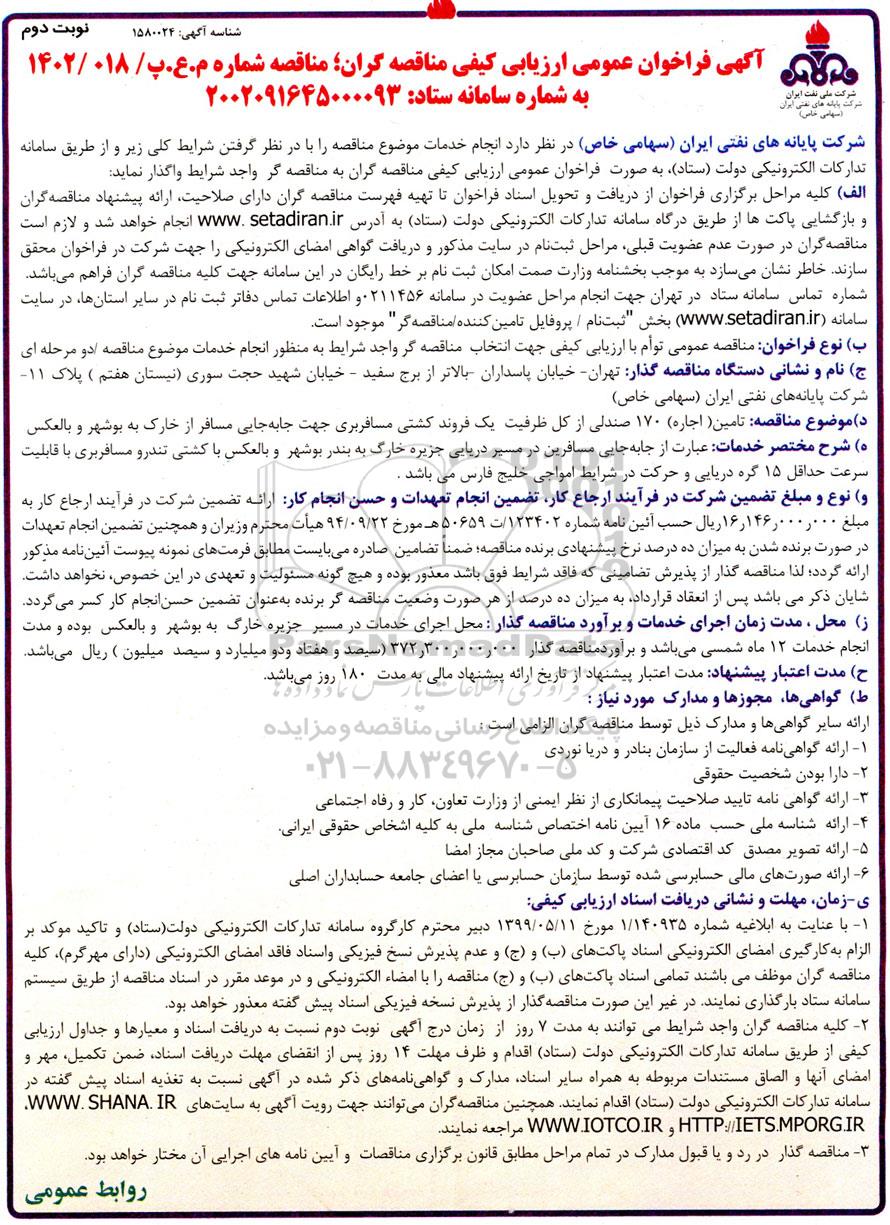 نوبت دوم
شناسه آگهی: ۱۵۸۰۰۲۴
آگهی فراخوان عمومی ارزیابی کیفی مناقصه گران؛ مناقصه شماره م.ع.پ/ ۰۱۸ /۱۴۰۲
به شماره سامانه ستاد: ۲۰۰۲۰۹۱۶۴۵۰۰۰۰۹۳
شرکت ملی نفت ایران
شرکت پایانه های نفتی ایران
(سهامی خاص)
شرکت پایانه های نفتی ایران (سهامی خاص) در نظر دارد انجام خدمات موضوع مناقصه را با در نظر گرفتن شرایط کلی زیر و از طریق سامانه
تدارکات الکترونیکی دولت (ستاد)، به صورت فراخوان عمومی ارزیابی کیفی مناقصه گران به مناقصه گر واجد شرایط واگذار نماید:
الف) کلیه مراحل برگزاری فراخوان از دریافت و تحویل اسناد فراخوان تا تهیه فهرست مناقصه گران دارای صلاحیت، ارائه پیشنهاد مناقصه‌گران
و بازگشایی پاکت ها از طریق درگاه سامانه تدارکات الکترونیکی دولت (ستاد) به آدرس www. setadiran.ir انجام خواهد شد و لازم است
مناقصه‌گران در صورت عدم عضویت قبلی، مراحل ثبت‌نام در سایت مذکور و دریافت گواهی امضای الکترونیکی را جهت شرکت در فراخوان محقق
سازند. خاطر نشان می‌سازد به موجب بخشنامه وزارت صمت امکان ثبت نام بر خط رایگان در این سامانه جهت کلیه مناقصه گران فراهم می‌باشد.
شماره تماس سامانه ستاد در تهران جهت انجام مراحل عضویت در سامانه ۰۲۱۱۴۵۶و اطلاعات تماس دفاتر ثبت نام در سایر استان‌ها، در سایت
سامانه (www.setadiran.ir) بخش "ثبت‌نام / پروفایل تامین‌کننده/مناقصه‌گر" موجود است.
ب) نوع فراخوان: مناقصه عمومی توأم با ارزیابی کیفی جهت انتخاب مناقصه گر واجد شرایط به منظور انجام خدمات موضوع مناقصه /دو مرحله ای
ج) نام و نشانی دستگاه مناقصه گذار: تهران- خیابان پاسداران -بالاتر از برج سفید - خیابان شهید حجت سوری (نیستان هفتم ) پلاک ۱۱-
شرکت پایانه‌های نفتی ایران (سهامی خاص)
د)موضوع مناقصه: تامین( اجاره) ۱۷۰ صندلی از کل ظرفیت یک فروند کشتی مسافربری جهت جابه‌جایی مسافر از خارک به بوشهر و بالعکس
ه) شرح مختصر خدمات: عبارت از جابه‌جایی مسافرین در مسیر دریایی جزیره خارگ به بندر بوشهر و بالعکس با کشتی تندرو مسافربری با قابلیت
سرعت حداقل ۱۵ گره دریایی و حرکت در شرایط امواجی خلیج فارس می باشد .
و) نوع و مبلغ تضمین شرکت در فرآیند ارجاع کار، تضمین انجام تعهدات و حسن انجام کار: ارائه تضمین شرکت در فرآیند ارجاع کار به
مبلغ ۱۶٫۱۴۶٫۰۰۰٫۰۰۰ریال حسب آئین نامه شماره ۱۲۳۴۰۲/ت ۵۰۶۵۹ هـ مورخ ۹۴/۰۹/۲۲ هیأت محترم وزیران و همچنین تضمین انجام تعهدات
در صورت برنده شدن به میزان ده درصد نرخ پیشنهادی برنده مناقصه؛ ضمناً تضامین صادره می‌بایست مطابق فرمت‌های نمونه پیوست آئین‌نامه مذکور
ارائه گردد؛ لذا مناقصه گذار از پذیرش تضامینی که فاقد شرایط فوق باشد معذور بوده و هیچ گونه مسئولیت و تعهدی در این خصوص، نخواهد داشت.
شایان ذکر می باشد پس از انعقاد قرارداد، به میزان ده درصد از هر صورت وضعیت مناقصه گر برنده به‌عنوان تضمین حسن‌انجام کار کسر می‌گردد.
ز) محل ، مدت زمان اجرای خدمات و برآورد مناقصه گذار : محل اجرای خدمات در مسیر جزیره خارگ به بوشهر و بالعکس بوده و مدت
انجام خدمات ۱۲ ماه شمسی می‌باشد و برآوردمناقصه گذار ۳۷۲٫۳۰۰٫۰۰۰٫۰۰۰ (سیصد و هفتاد ودو میلیارد و سیصد میلیون ) ریال می‌باشد.
ح) مدت اعتبار پیشنهاد: مدت اعتبار پیشنهاد از تاریخ ارائه پیشنهاد مالی به مدت ۱۸۰ روز می‌باشد.
ط) گواهی‌ها، مجوزها و مدارک مورد نیاز :
ارائه سایر گواهی‌ها و مدارک ذیل توسط مناقصه‌گران الزامی است :
۱- ارائه گواهی‌نامه فعالیت از سازمان بنادر و دریا نوردی
۲- دارا بودن شخصیت حقوقی
۳- ارائه گواهی نامه تایید صلاحیت پیمانکاری از نظر ایمنی از وزارت تعاون، کار و رفاه اجتماعی
۴- ارائه شناسه ملی حسب ماده ۱۶ آیین نامه اختصاص شناسه ملی به کلیه اشخاص حقوقی ایرانی.
۵- ارائه تصویر مصدق کد اقتصادی شرکت و کد ملی صاحبان مجاز امضا
۶- ارائه صورت‌های مالی حسابرسی شده توسط سازمان حسابرسی یا اعضای جامعه حسابداران اصلی
ی-زمان، مهلت و نشانی دریافت اسناد ارزیابی کیفی:
۱- با عنایت به ابلاغیه شماره ۱/۱۴۰۹۳۵ مورخ ۱۳۹۹/۰۵/۱۱ دبیر محترم کارگروه سامانه تدارکات الکترونیکی دولت(ستاد) و تاکید موکد بر
الزام به‌کارگیری امضای الکترونیکی اسناد پاکت‌های (ب) و (ج) و عدم پذیرش نسخ فیزیکی واسناد فاقد امضای الکترونیکی (دارای مهرگرم)، کلیه
مناقصه گران موظف می باشند تمامی اسناد پاکت‌های (ب) و (ج) مناقصه را با امضاء الکترونیکی و در موعد مقرر در اسناد مناقصه از طریق سیستم
سامانه ستاد بارگذاری نمایند. در غیر این صورت مناقصه‌گذار از پذیرش نسخه فیزیکی اسناد پیش گفته معذور خواهد بود.
۲- کلیه مناقصه گران واجد شرایط می توانند به مدت ۷ روز از زمان درج آگهی نوبت دوم نسبت به دریافت اسناد و معیارها و جداول ارزیابی
کیفی از طریق سامانه تدارکات الکترونیکی دولت (ستاد) اقدام و ظرف مهلت ۱۴ روز پس از انقضای مهلت دریافت اسناد، ضمن تکمیل، مهر و
امضای آنها و الصاق مستندات مربوطه به همراه سایر اسناد، مدارک و گواهی‌نامه‌های ذکر شده در آگهی نسبت به تغذیه اسناد پیش گفته در
سامانه تدارکات الکترونیکی دولت (ستاد) اقدام نمایند. همچنین مناقصه‌گران می‌توانند جهت رویت آگهی به سایت‌های WWW. SHANA. IR،
HTTP://IETS.MPORG.IR و WWW.IOTCO.IR مراجعه نمایند.
۳- مناقصه گذار در رد و یا قبول مدارک در تمام مراحل مطابق قانون برگزاری مناقصات و آیین نامه های اجرایی آن مختار خواهد بود.
روابط عمومی
ParsNamadData
مرکز فرآوری اطلاعات پارس نماد داده ها
پایگاه اطلاع رسانی مناقصه و مزایده
۰۲۱-۸۸۳۴۹۶۷۰-۵